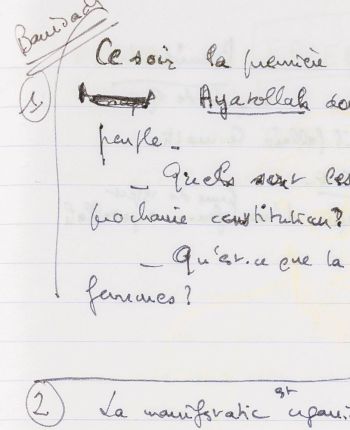 Ce soir la première
1
Ayatollah
peuple.
- Quels sont les
prochaine constitution?
- Qu'est-ce que la
femmes?
2 La manifestatio est organi